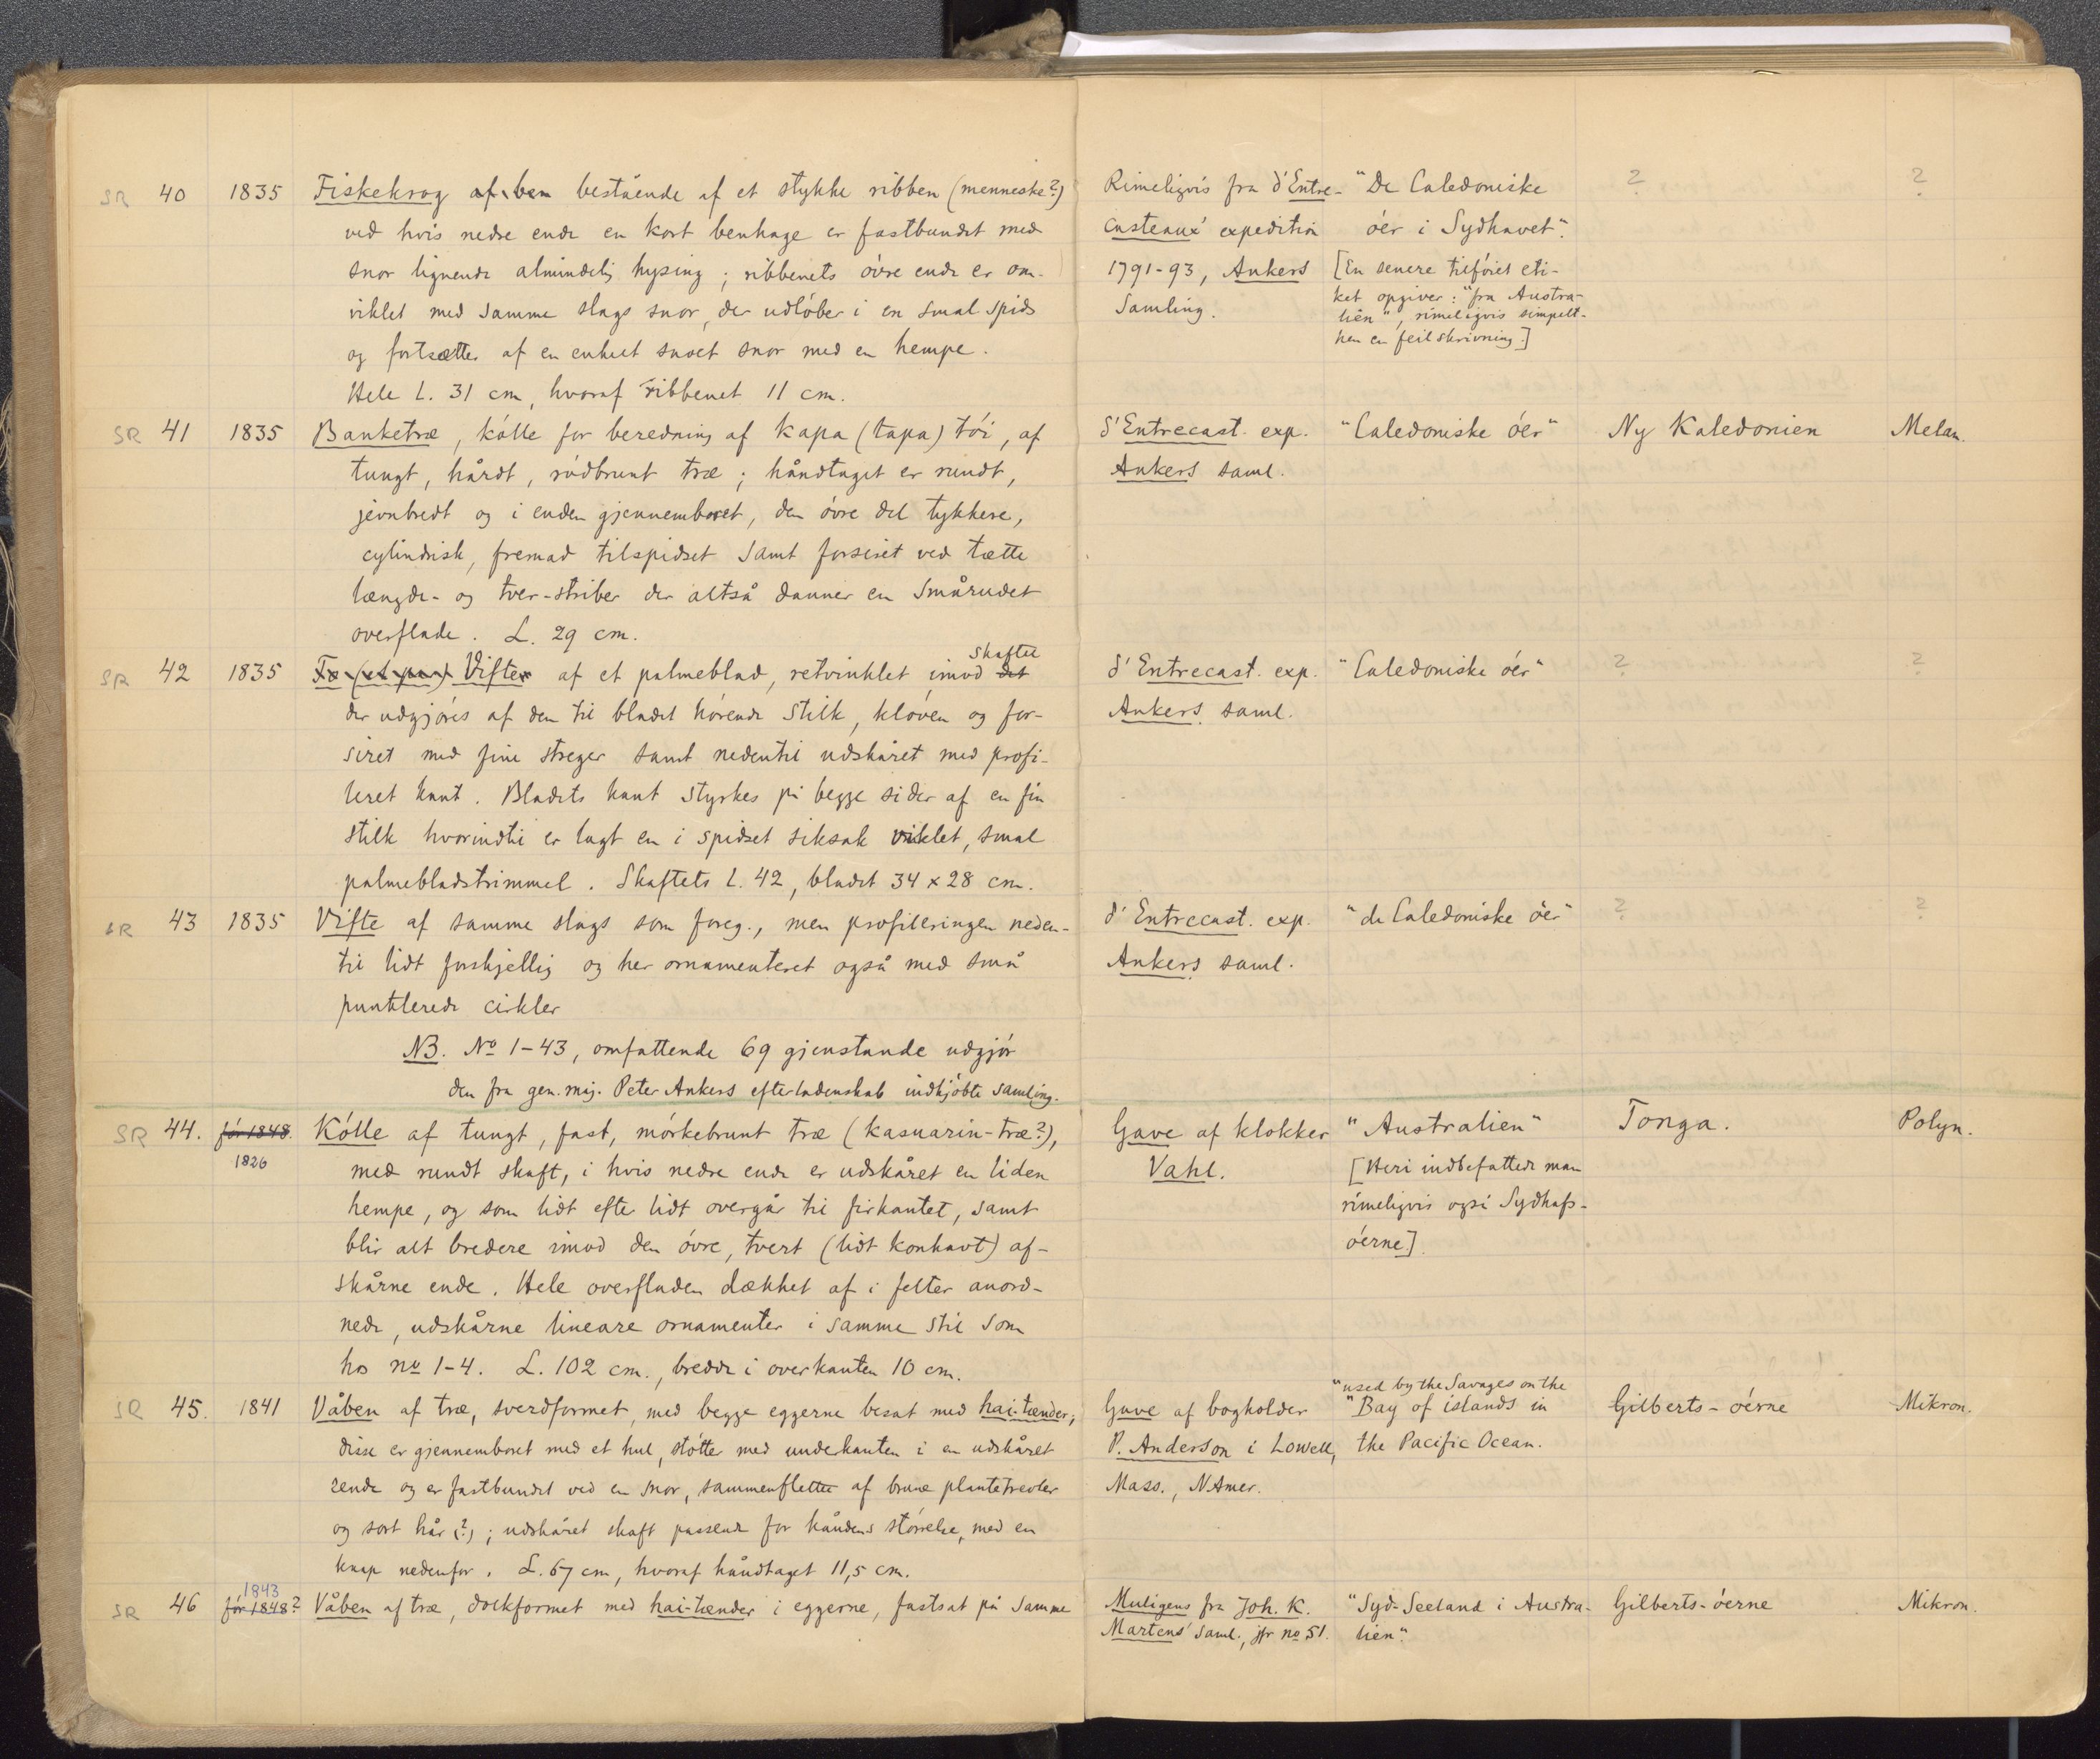 SR 40 1835 Fiskekrog af ben bestående af et stykke ribben (menneske?) Rimeligvis fra d'Entre- "De Caledoniske ? ?
ved hvis nedre ende en kort benhage er fastbundet med casteaux' expedition óer i Sydhavet".
snor lignende almindelig hysing; ribbenets óvre ende er om- 1791-93, Ankers [En senere tilfóiet eti-
viklet med samme slags snor, der udlóber i en smal spids Samling. ket opgiver: "fra Austra-
lien", rimeligvis simpelt-
og fortsætter af en enkelt snoet snor med en hempe. hen en feilskrivning.]
Hele L. 31 cm, hvoraf ribbenet 11 cm.
SR 41 1835 Banketræ, kólle for beredning af kapa (tapa) tói, af d'Entrecast. exp. "Caledoniske óer" Ny Kaledonien Melan.
tungt, hårdt,ródbrunt træ; håndtaget er rundt, Ankers saml.
jevnbredt og i enden gjennemboret, den óvre del tykkere,
cylindrisk, fremad tilspidset samt forsiret ved tætte
længde- og tver-striber der altså danner en smårudet
overflade. L. 29 cm.
skaftet
SR 42 1835 To (et par) Vifter af et palmeblad, retvinklet imod det d'Entrecast. exp. "Caledoniske óer" ? ?
der udgjóres af den til bladet hórende stilk, klóven og for- Ankers saml.
siret med fine streger samt nedentil udskåret med profi-
leret kant. Bladets kant styrkes på begge sider af en fin
stilk hvorindtil er lagt en i spidset siksak viklet, smal
palmebladstrimmel. Skaftets L. 42, bladet 34 x 28 cm.
SR 43 1835 Vifte af samme slags som foreg., men profileringen neden- d'Entrecast. exp. "de Caledoniske óer" ? ?
til lidt forskjellig og her ornamenteret også med små Ankers saml.
punkterede cirkler
NB. No 1-43, omfattende 69 gjenstande udgjór
den fra gen.maj. Peter Ankers efterladenskab indkjóbte samling.
SR 44. fór 1848. Kólle af tungt, fast, mórkebrunt træ (kasuarin-træ?), Gave af klokker "Australien" Tonga. Polyn.
1826 med rundt skaft, i hvis nedre ende er udskåret en liden Vahl. [Heri indbefattede man
hempe, og som lidt efter lidt overgår til firkantet, samt rimeligvis også Sydhafs-
blir alt bredere imod den óvre, tvert (lidt konkavt) af- óerne].
skårne ende. Hele overfladen dækket af i felter anord-
nede, udskårne lineare ornamenter i samme stil som
hos no 1-4. L. 102 cm., bredde i overkanten 10 cm.
"used by the Savages on the
SR 45. 1841 Våben af træ, sverdformet, med begge eggerne besat med hai-tænder; Gave af bogholder "Bay of islands in Gilberts-óerne Mikron.
disse er gjennemboret med et hul, stótter med underkanten i en udskåret P. Anderson i Lowell, the Pacific Ocean.
rende og er fastbundet ved en snor, sammenflettet af brune plantetrevler Mass., N Amer.
og sort hår (?); udskåret skaft passende for håndens stórrelse, med en
knap nedenfor. L. 67 cm, hvoraf håndtaget 11,5 cm.
1843
SR 46 fór 1848? Våben af træ, dolkformet med hai-tænder i eggerne, fastsat på samme Muligens fra Joh. K. "Syd-Seeland i Austra- Gilberts-óerne Mikron.
Martens' saml., jfr no 51. lien".